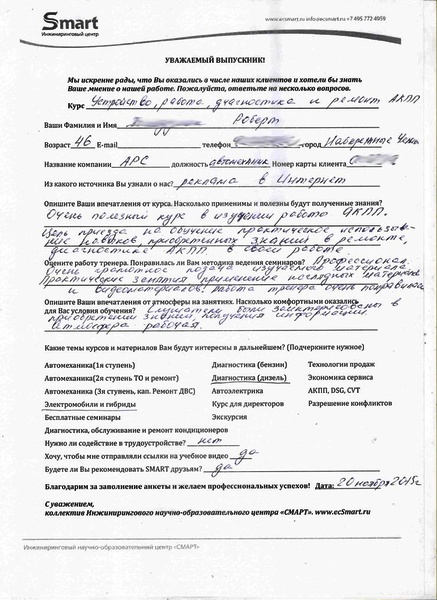 Smart
Инжиниринговый центр
www.ecsmart.ru info@ecsmart.ru +7 495 772 4959
УВАЖАЕМЫЙ ВЫПУСКНИК!
Мы искренне рады, что Вы оказались в числе наших клиентов и хотели бы знать
Ваше мнение о нашей работе. Пожалуйста, ответьте на несколько вопросов.
Курс Устройство, работа, диагностика и ремонт АКПП
Ваши Фамилия и Имя Роберт
Возраст 46 E-mail телефон город Набережные Челны
Название компании АРС должность автомеханик Номер карты клиента
Из какого источника Вы узнали о нас реклама в Интернет
Опишите Ваши впечатления от курса. Насколько применимы и полезны будут полученные знания?
Очень полезный курс в изучении работы АКПП.
Цель приезда на обучение практическое использование
навыков, приобретенных знаний в ремонте,
диагностике АКПП в своей работе.
Оцените работу тренера. Понравилась ли Вам методика ведения семинаров? Профессионал.
Очень грамотное подача изучаемого материала.
Практические занятия применение наглядных материалов
и видеоматериалов! Работа тренера очень понравилась
Опишите Ваши впечатления от атмосферы на занятиях. Насколько комфортными оказались
для Вас условия обучения? Слушатели были заинтересованы в
приобретении знаний, получения информации.
Атмосфера рабочая.
Какие темы курсов и материалов Вам будут интересны в дальнейшем? (Подчеркните нужное)
Автомеханика(1я ступень) Диагностика (бензин) Технологии продаж
Автомеханика(2я ступень ТО и ремонт) Диагностика (дизель) Экономика сервиса
Автомеханика (3я ступень, кап. Ремонт ДВС) Автоэлектрика АКПП, DSG, CVT
Электромобили и гибриды Курс для директоров Разрешение конфликтов
Бесплатные семинары Экскурсия
Диагностика, обслуживание и ремонт кондиционеров
Нужно ли содействие в трудоустройстве? нет
Хочу, чтобы мне отправляли ссылки на учебное видео да
Будете ли Вы рекомендовать SMART друзьям? да
Благодарим за заполнение анкеты и желаем профессиональных успехов! Дата: 20 ноября 2015г
С уважением,
коллектив Инжинирингового научно-образовательного центра «СМАРТ». www.ecSmart.ru
Инжиниринговый научно-образовательный центр «СМАРТ»